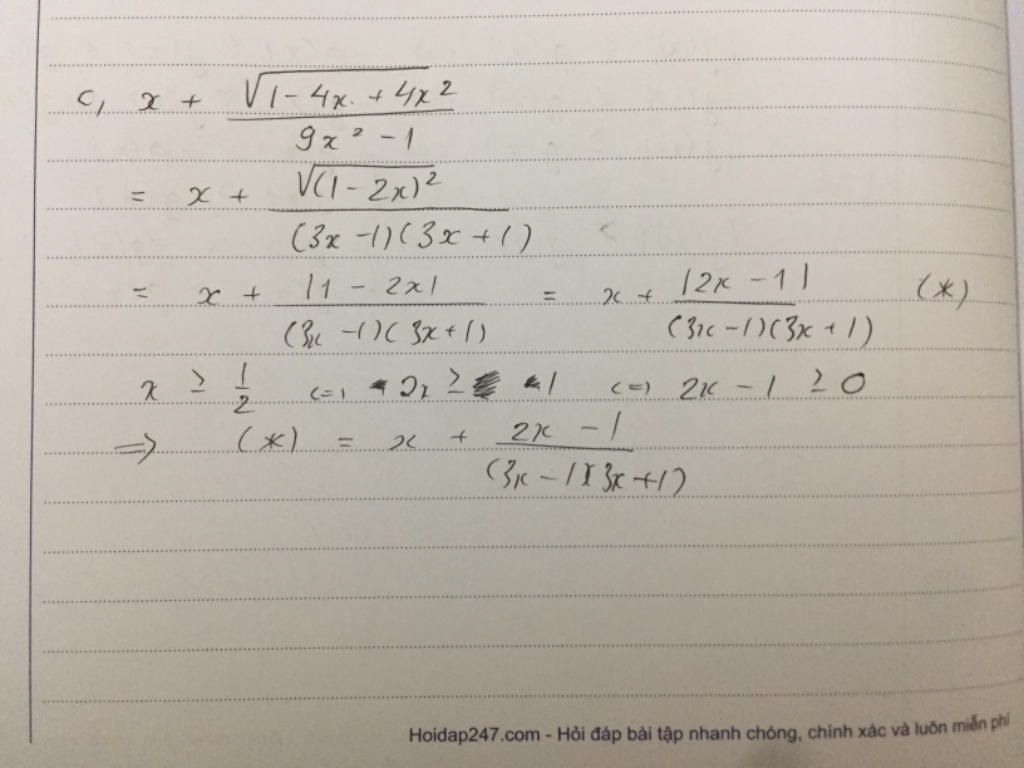 c, x + √(1 - 4x + 4x²) / (9x² - 1)
= x + √((1 - 2x)²) / ((3x - 1)(3x + 1))
= x + |1 - 2x| / ((3x - 1)(3x + 1)) = x + |2x - 1| / ((3x - 1)(3x + 1)) (*)
x ≥ 1/2 <=> 2x ≥ 1 <=> 2x - 1 ≥ 0
=> (*) = x + (2x - 1) / ((3x - 1)(3x + 1))
Hoidap247.com - Hỏi đáp bài tập nhanh chóng, chính xác và luôn miễn phí